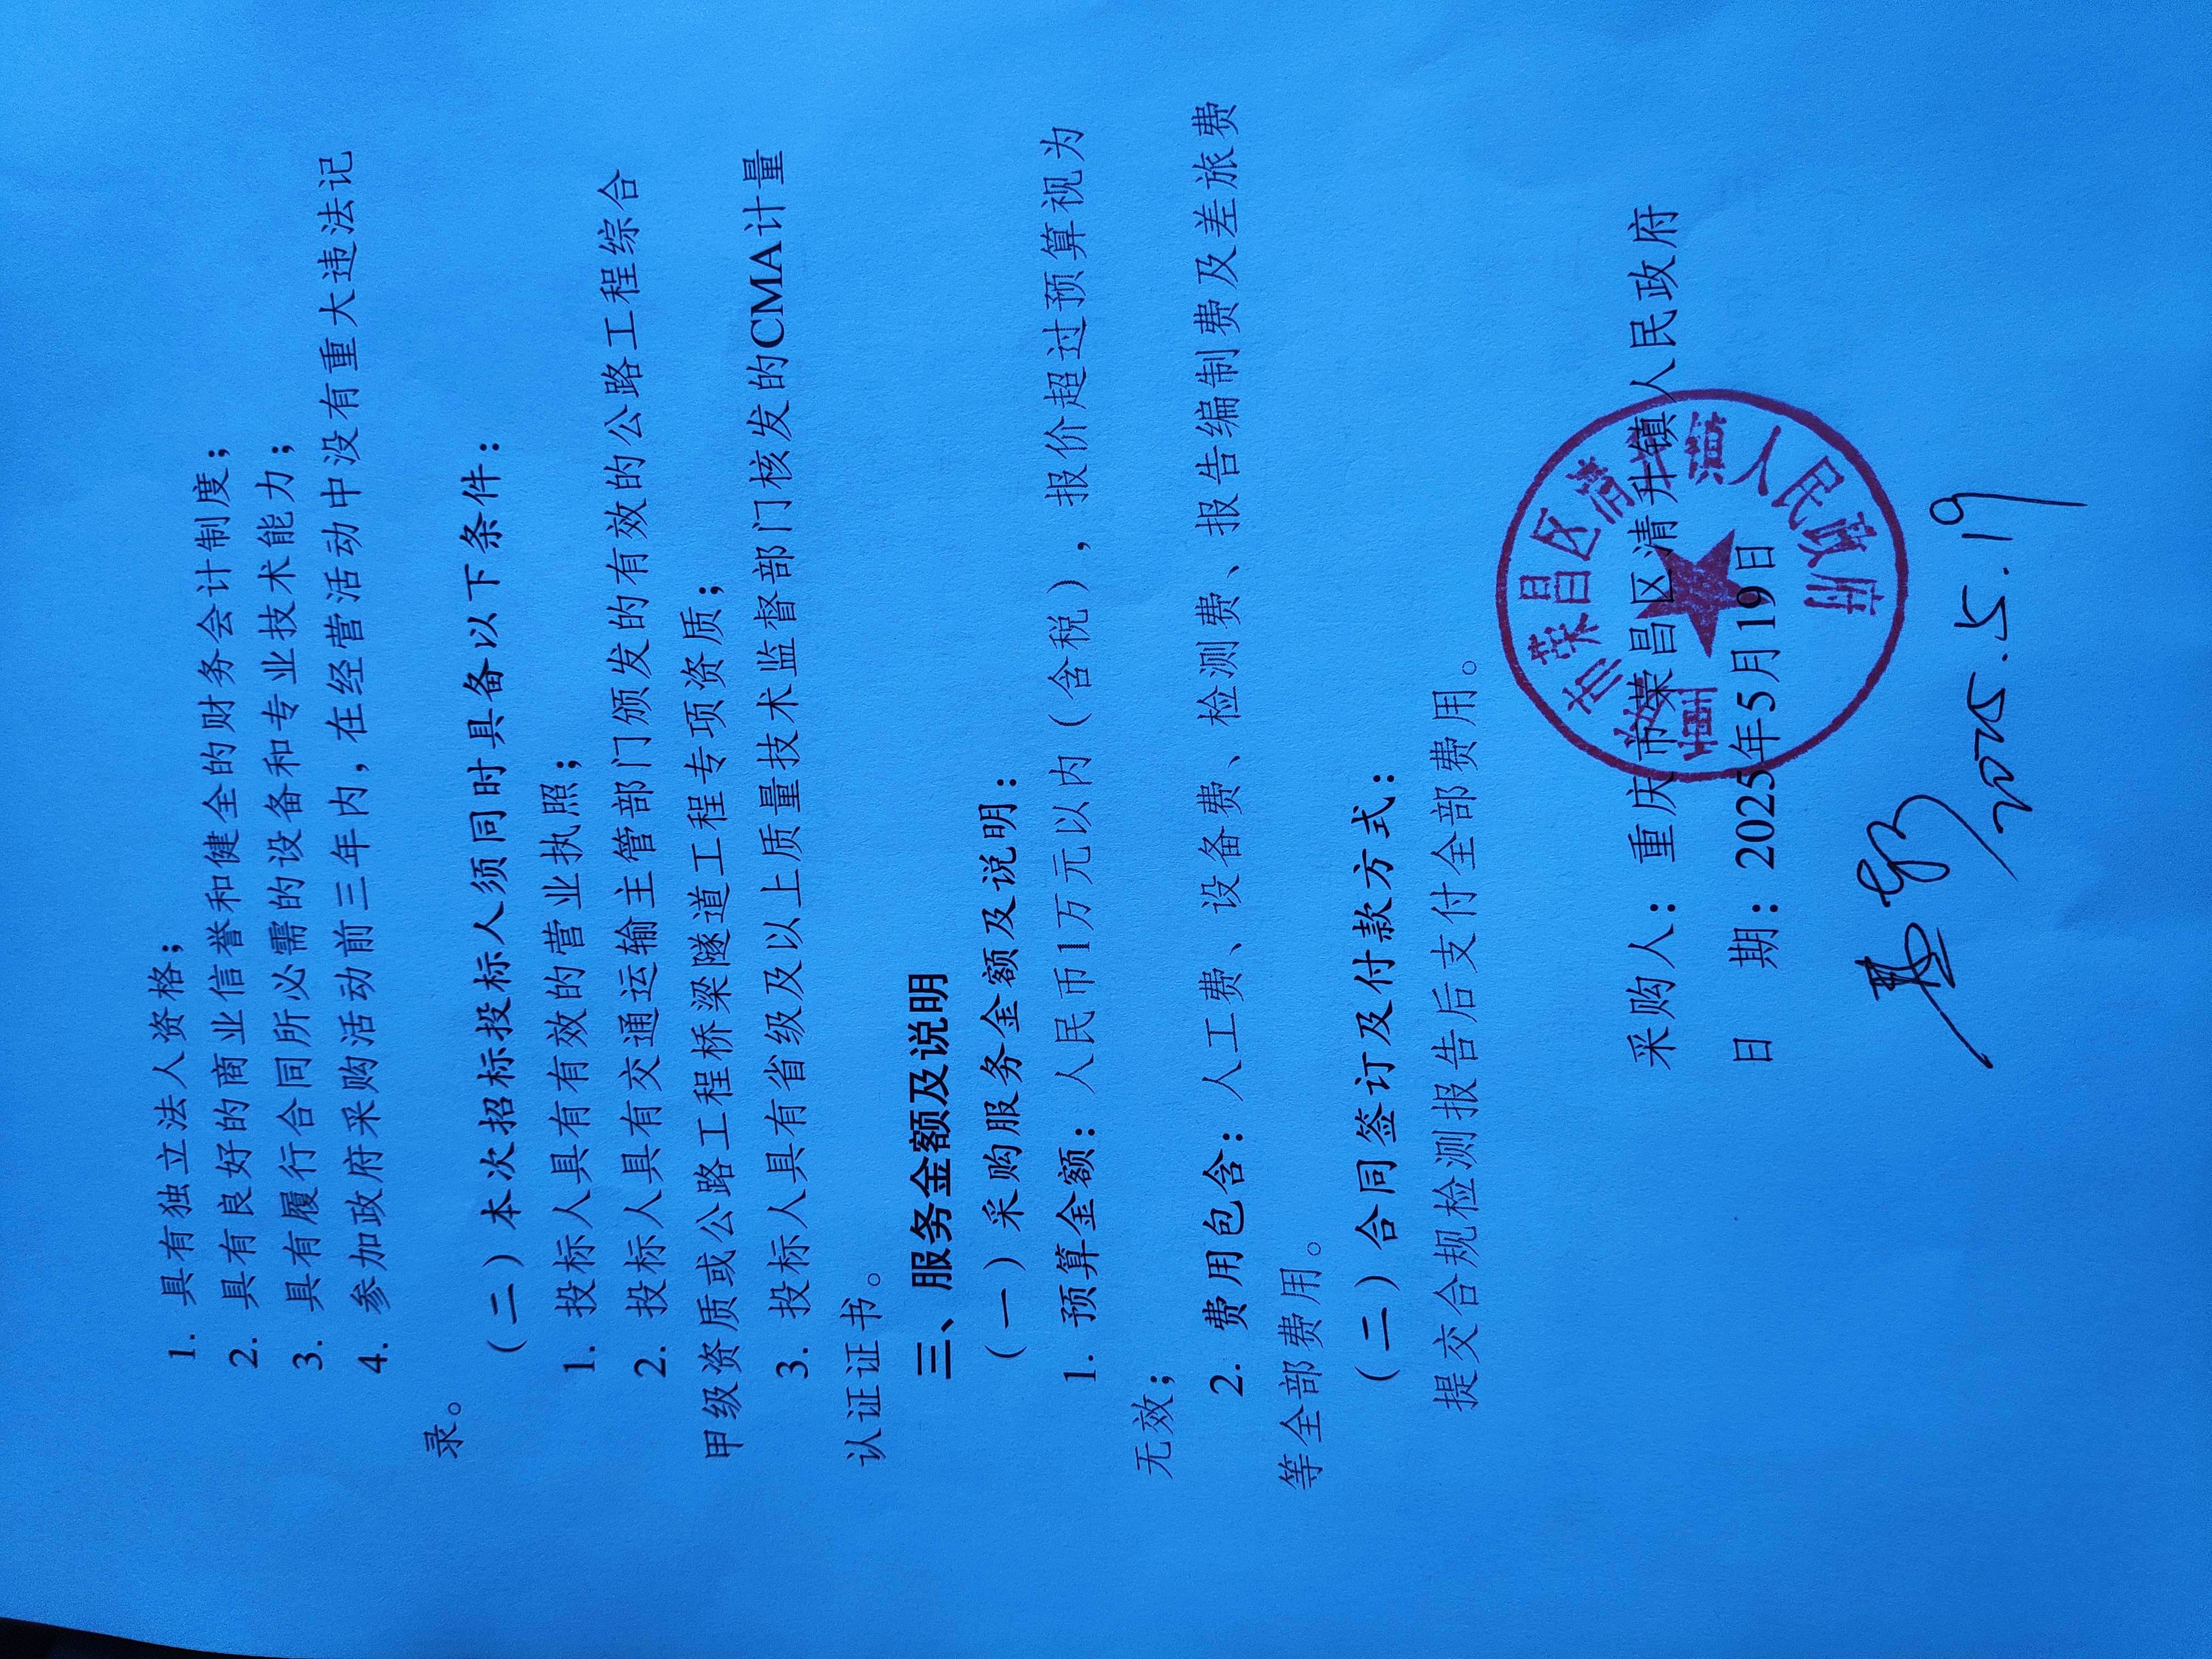 1. 具有独立法人资格；
2. 具有良好的商业信誉和健全的财务会计制度；
3. 具有履行合同所必需的设备和专业技术能力；
4. 参加政府采购活动前三年内，在经营活动中没有重大违法记
录。
（二）本次招标投标人须同时具备以下条件：
1. 投标人具有有效的营业执照；
2. 投标人具有交通运输主管部门颁发的有效的公路工程综合
甲级资质或公路工程桥梁隧道工程专项资质；
3. 投标人具有省级及以上质量技术监督部门核发的CMA计量
认证证书。
三、服务金额及说明
（一）采购服务金额及说明：
1. 预算金额：人民币1万元以内（含税），报价超过预算视为
无效；
2. 费用包含：人工费、设备费、检测费、报告编制费及差旅费
等全部费用。
（二）合同签订及付款方式：
提交合规检测报告后支付全部费用。
采购人：重庆市荣昌区清升镇人民政府
日 期：2025年5月19日
市荣昌区清升镇人民政府
2025.5.19